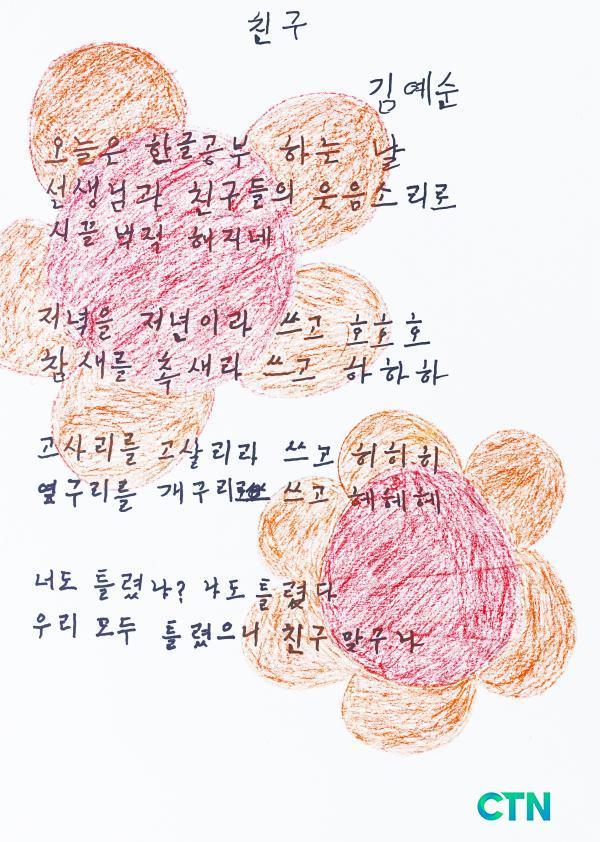 친구
김예순
오늘은 한글공부 하는 날
선생님과 친구들의 웃음소리로
시끌 벅적 해지네
저녁을 저년이라 쓰고 호호호
참새를 촉새라 쓰고 하하하
고사리를 고살리라 쓰고 히히히
옆구리를 개구리 쓰고 헤헤헤
너도 틀렸냐? 나도 틀렸다
우리 모두 틀렸으니 친구 맞구나
CTN